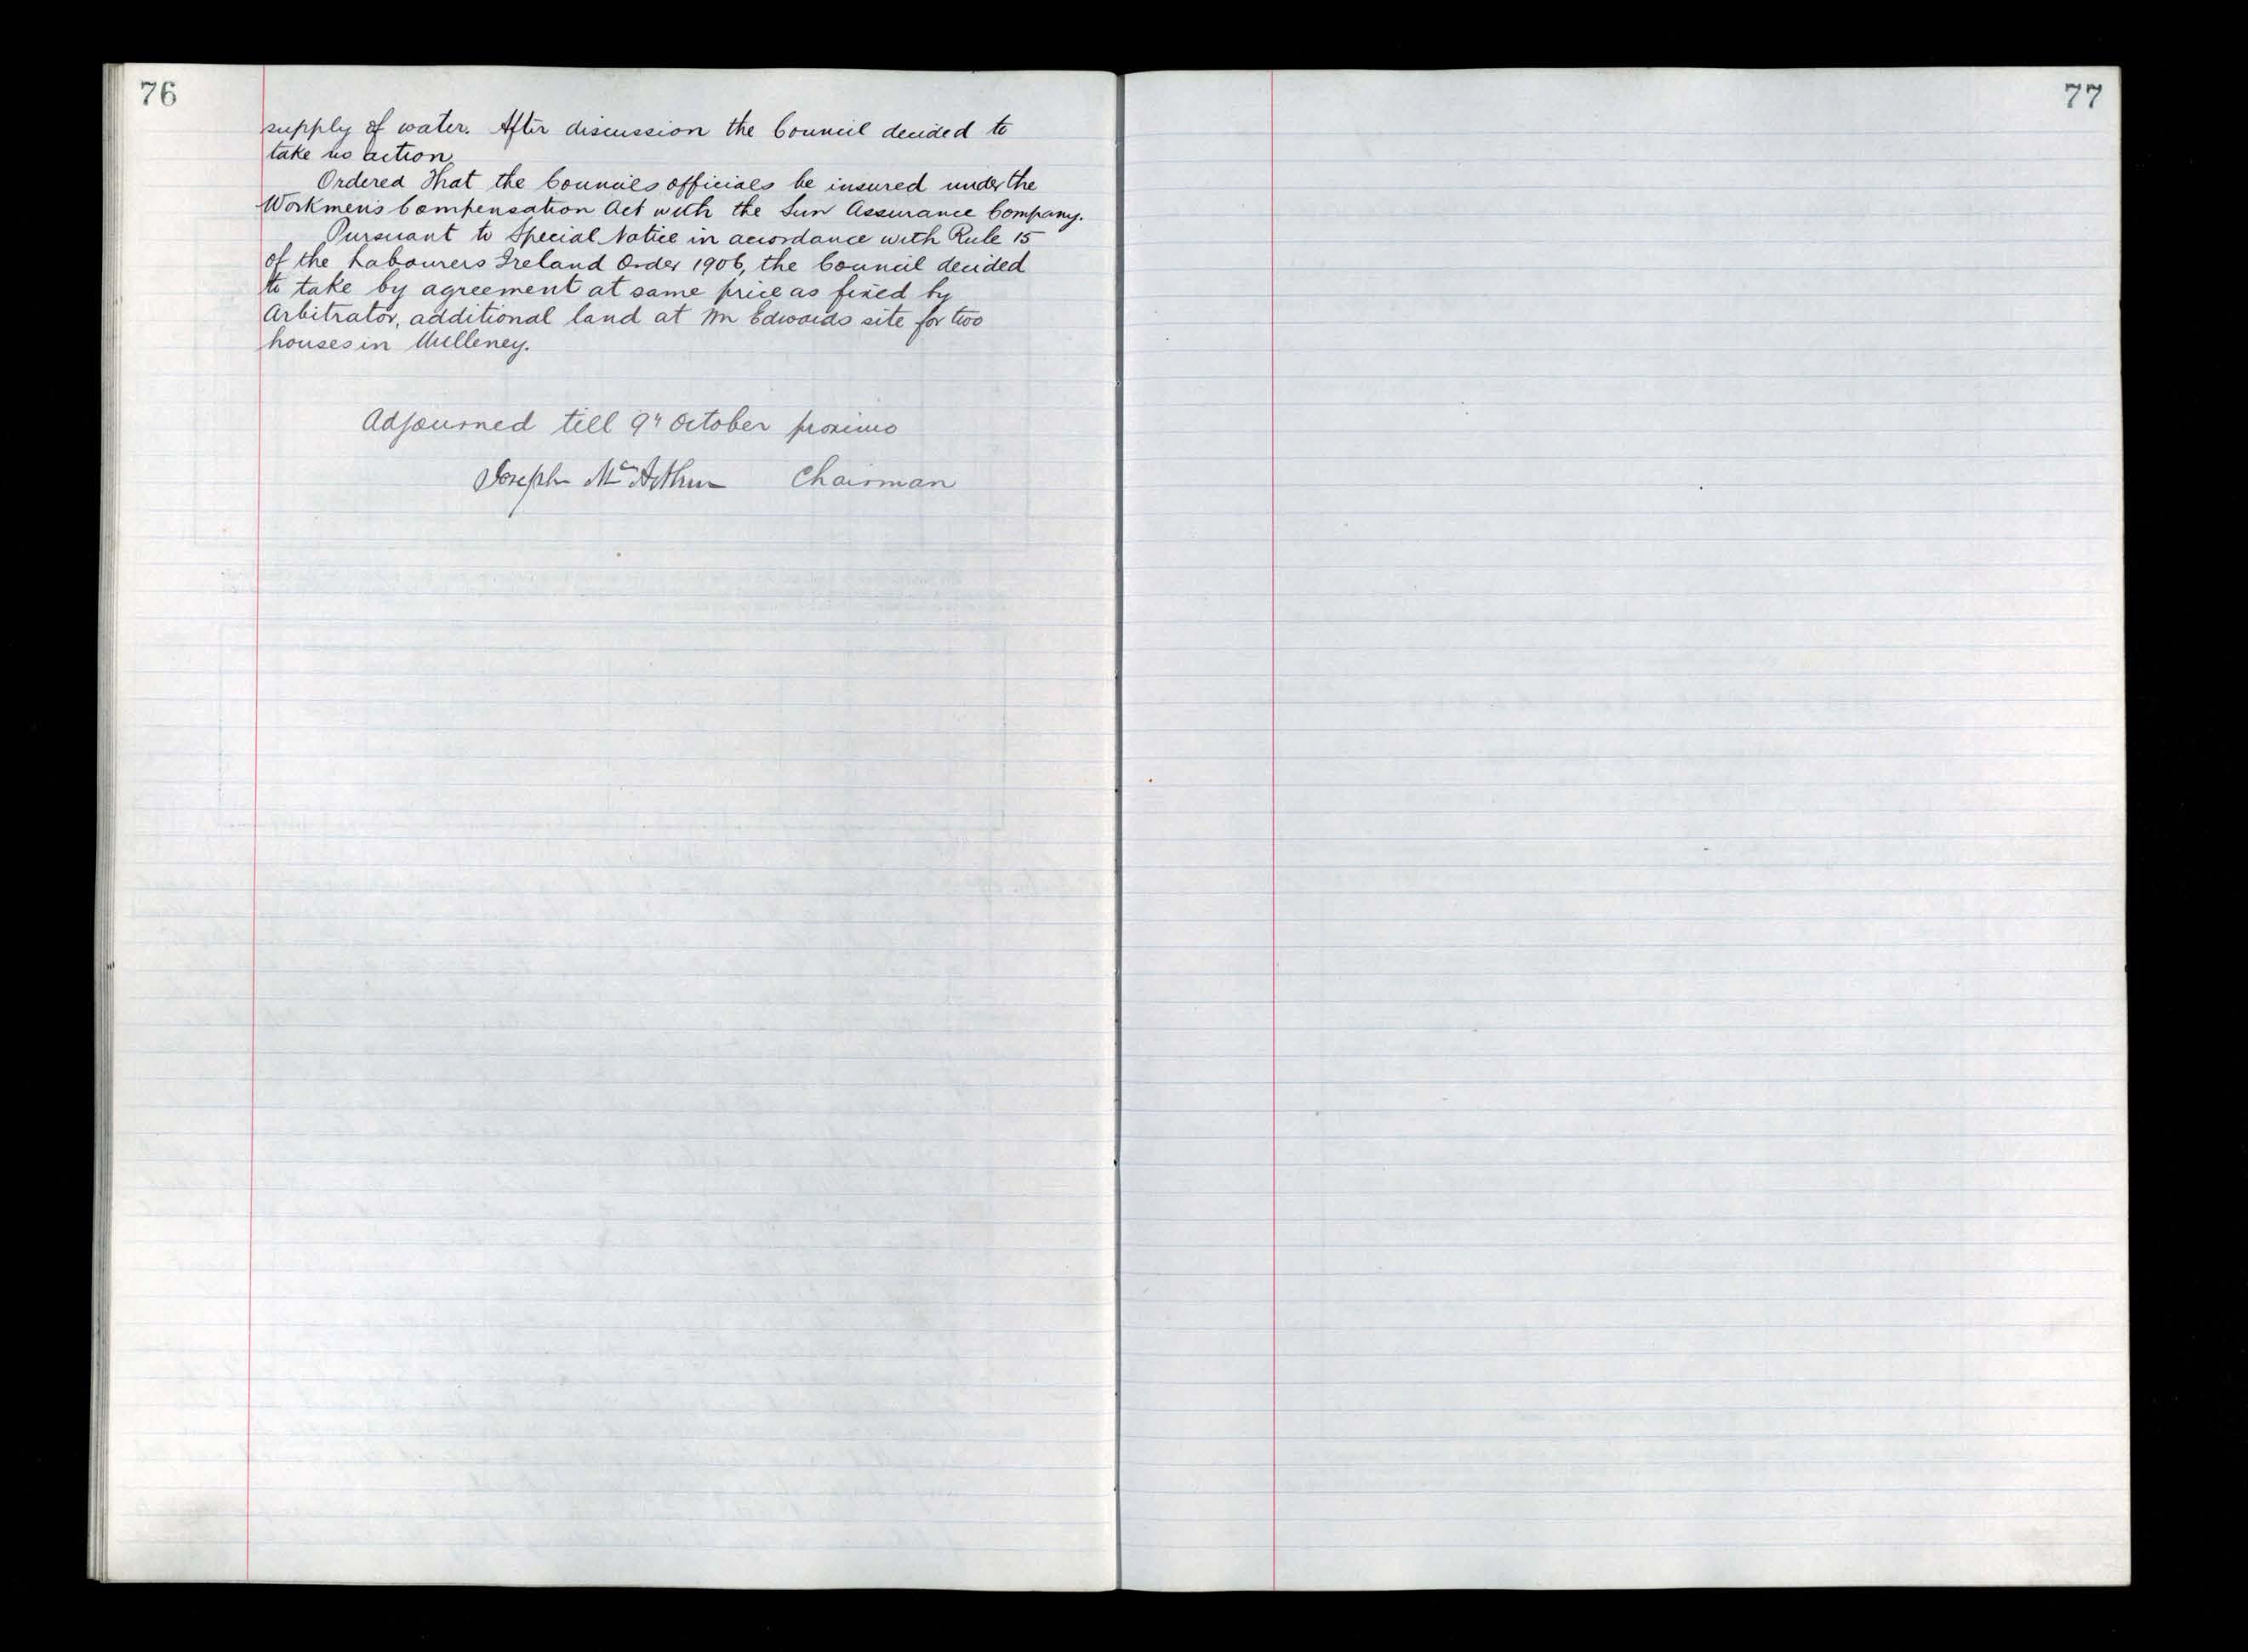 76
supply of water. After discussion the Council decided to
take no action
Ordered That the Councils officials be insured under the
Workmen's Compensation Act with the Sun Assurance Company.
Pursuant to Special Notice in accordance with Rule 15
of the Labourers Ireland Order 1906, the Council decided
to take by agreement at same price as fixed by
Arbitrator, additional land at Mr Edwards site for two
houses in Mulleney.
Adjourned till 9" October proximo
Joseph McArthur Chairman
77